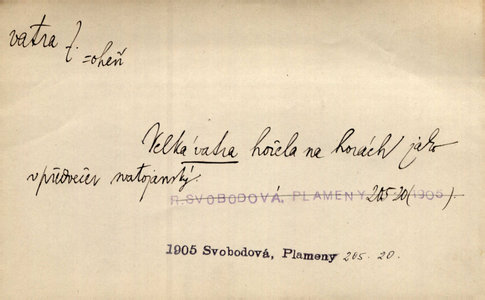 vatra f.
=oheň
Velká vatra hořela na horách jako
v předvečer svatojanský.
R.SVOBODOVÁ, PLAMENY 205 20 (1905)
1905 Svobodová, Plameny 205. 20.